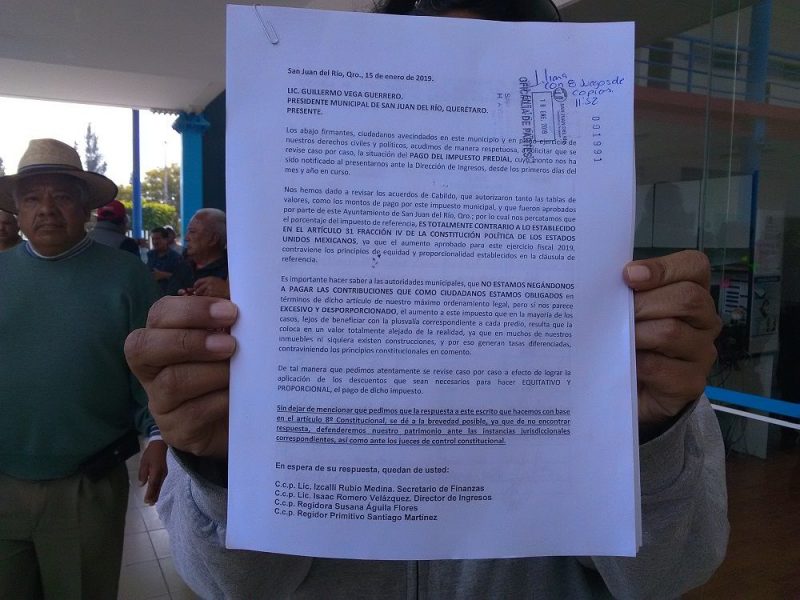 San Juan del Río, Qro., 15 de enero de 2019.
LIC. GUILLERMO VEGA GUERRERO.
PRESIDENTE MUNICIPAL DE SAN JUAN DEL RÍO, QUERÉTARO.
PRESENTE.
con 8 juegos de
copias
11:52
OFICIALIA DE PARTES
001991
Los abajo firmantes, ciudadanos avecindados en este municipio y en pleno ejercicio de
nuestros derechos civiles y políticos, acudimos de manera respetuosa, solicitar que se
revise caso por caso, la situación del PAGO DEL IMPUESTO PREDIAL, cuyo monto nos ha
sido notificado al presentarnos ante la Dirección de Ingresos, desde los primeros días del
mes y año en curso.
Nos hemos dado a revisar los acuerdos de Cabildo, que autorizaron tanto las tablas de
valores, como los montos de pago por este impuesto municipal, y que fueron aprobados
por parte de este Ayuntamiento de San Juan del Río, Qro.; por lo cual nos percatamos que
el porcentaje del impuesto de referencia, ES TOTALMENTE CONTRARIO A LO ESTABLECIDO
EN EL ARTÍCULO 31 FRACCIÓN IV DE LA CONSTITUCIÓN POLÍTICA DE LOS ESTADOS
UNIDOS MEXICANOS, ya que el aumento aprobado para este ejercicio fiscal 2019,
contraviene los principios de equidad y proporcionalidad establecidos en la cláusula de
referencia.
Es importante hacer saber a las autoridades municipales, que NO ESTAMOS NEGÁNDONOS
A PAGAR LAS CONTRIBUCIONES QUE COMO CIUDADANOS ESTAMOS OBLIGADOS en
términos de dicho artículo de nuestro máximo ordenamiento legal, pero si nos parece
EXCESIVO Y DESPORPORCIONADO, el aumento a este impuesto que en la mayoría de los
casos, lejos de beneficiar con la plusvalía correspondiente a cada predio, resulta que la
coloca en un valor totalmente alejado de la realidad, ya que en muchos de nuestros
inmuebles ni siquiera existen construcciones, y por eso generan tasas diferenciadas,
contraviniendo los principios constitucionales en comento.
De tal manera que pedimos atentamente se revise caso por caso a efecto de lograr la
aplicación de los descuentos que sean necesarios para hacer EQUITATIVO Y
PROPORCIONAL, el pago de dicho impuesto.
Sin dejar de mencionar que pedimos que la respuesta a este escrito que hacemos con base
en el artículo 8º Constitucional, se dé a la brevedad posible, ya que de no encontrar
respuesta, defenderemos nuestro patrimonio ante las instancias jurisdiccionales
correspondientes, así como ante los jueces de control constitucional.
En espera de su respuesta, quedan de usted:
C.c.p. Lic. Izcalli Rubio Medina. Secretario de Finanzas
C.c.p. Lic. Isaac Romero Velázquez. Director de Ingresos
C.c.p. Regidora Susana Águila Flores
C.c.p. Regidor Primitivo Santiago Martínez